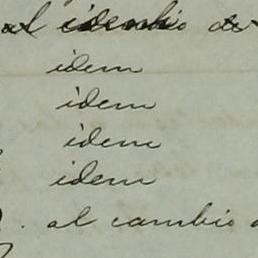 al cambio de
idem
idem
idem
idem
al cambio